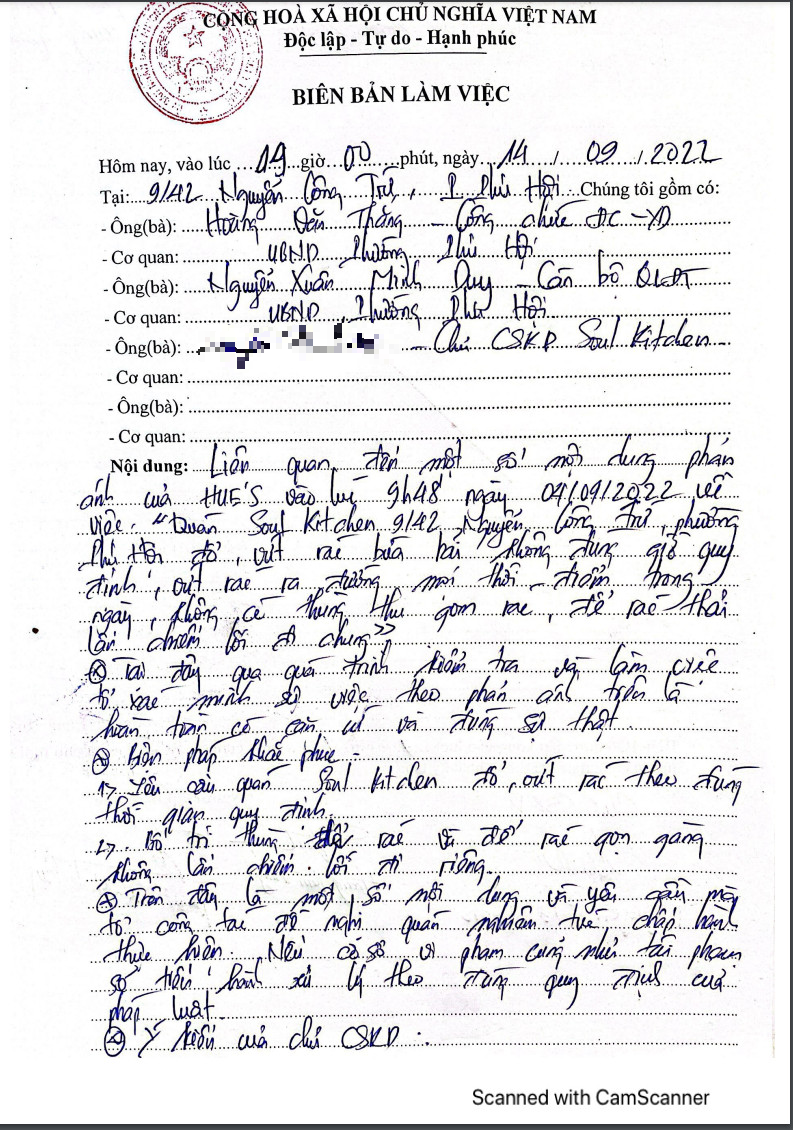 CỘNG HOÀ XÃ HỘI CHỦ NGHĨA VIỆT NAM
Độc lập - Tự do - Hạnh phúc
BIÊN BẢN LÀM VIỆC
Hôm nay, vào lúc 19 giờ 00 phút, ngày 14 / 09 / 2022
Tại: 9/42 Nguyễn Công Trứ, P. Phú Hội. Chúng tôi gồm có:
- Ông(bà): Hoàng Văn Thắng - Công chức ĐC - XD
- Cơ quan: UBND Phường Phú Hội
- Ông(bà): Nguyễn Xuân Minh Duy - Cán bộ QLĐT
- Cơ quan: UBND Phường Phú Hội
- Ông(bà): - Chủ CSKD Soul Kitchen
- Cơ quan:
- Ông(bà):
- Cơ quan:
Nội dung: Liên quan đến một số nội dung phản
ánh của HUE'S vào lúc 9h48' ngày 04/09/2022 về
việc: "Quán Soul Kitchen 9/42 Nguyễn Công Trứ, phường
Phú Hội đổ, vứt rác bừa bãi không đúng giờ quy
định, vứt rác ra đường mọi thời điểm trong
ngày, không có thùng thu gom rác, để rác thải
lấn chiếm lối đi chung>>
* Tại đây qua quá trình kiểm tra và làm việc
tổ xác minh sự việc theo phản ánh trên là
hoàn toàn có căn cứ và đúng sự thật
* Biện pháp khắc phục:
1> Yêu cầu quán Soul Kitchen đổ, vứt rác theo đúng
thời gian quy định.
2> Bố trí thùng rác và để rác gọn gàng
không lấn chiếm lối đi riêng.
* Trên đây là một số nội dung và yêu cầu mà
tổ công tác đề nghị quán nghiêm túc chấp hành
thực hiện. Nếu có sơ vi phạm cũng như tái phạm
sẽ tiến hành xử lý theo đúng quy định của
pháp luật.
* Ý kiến của chủ CSKD:
Scanned with CamScanner